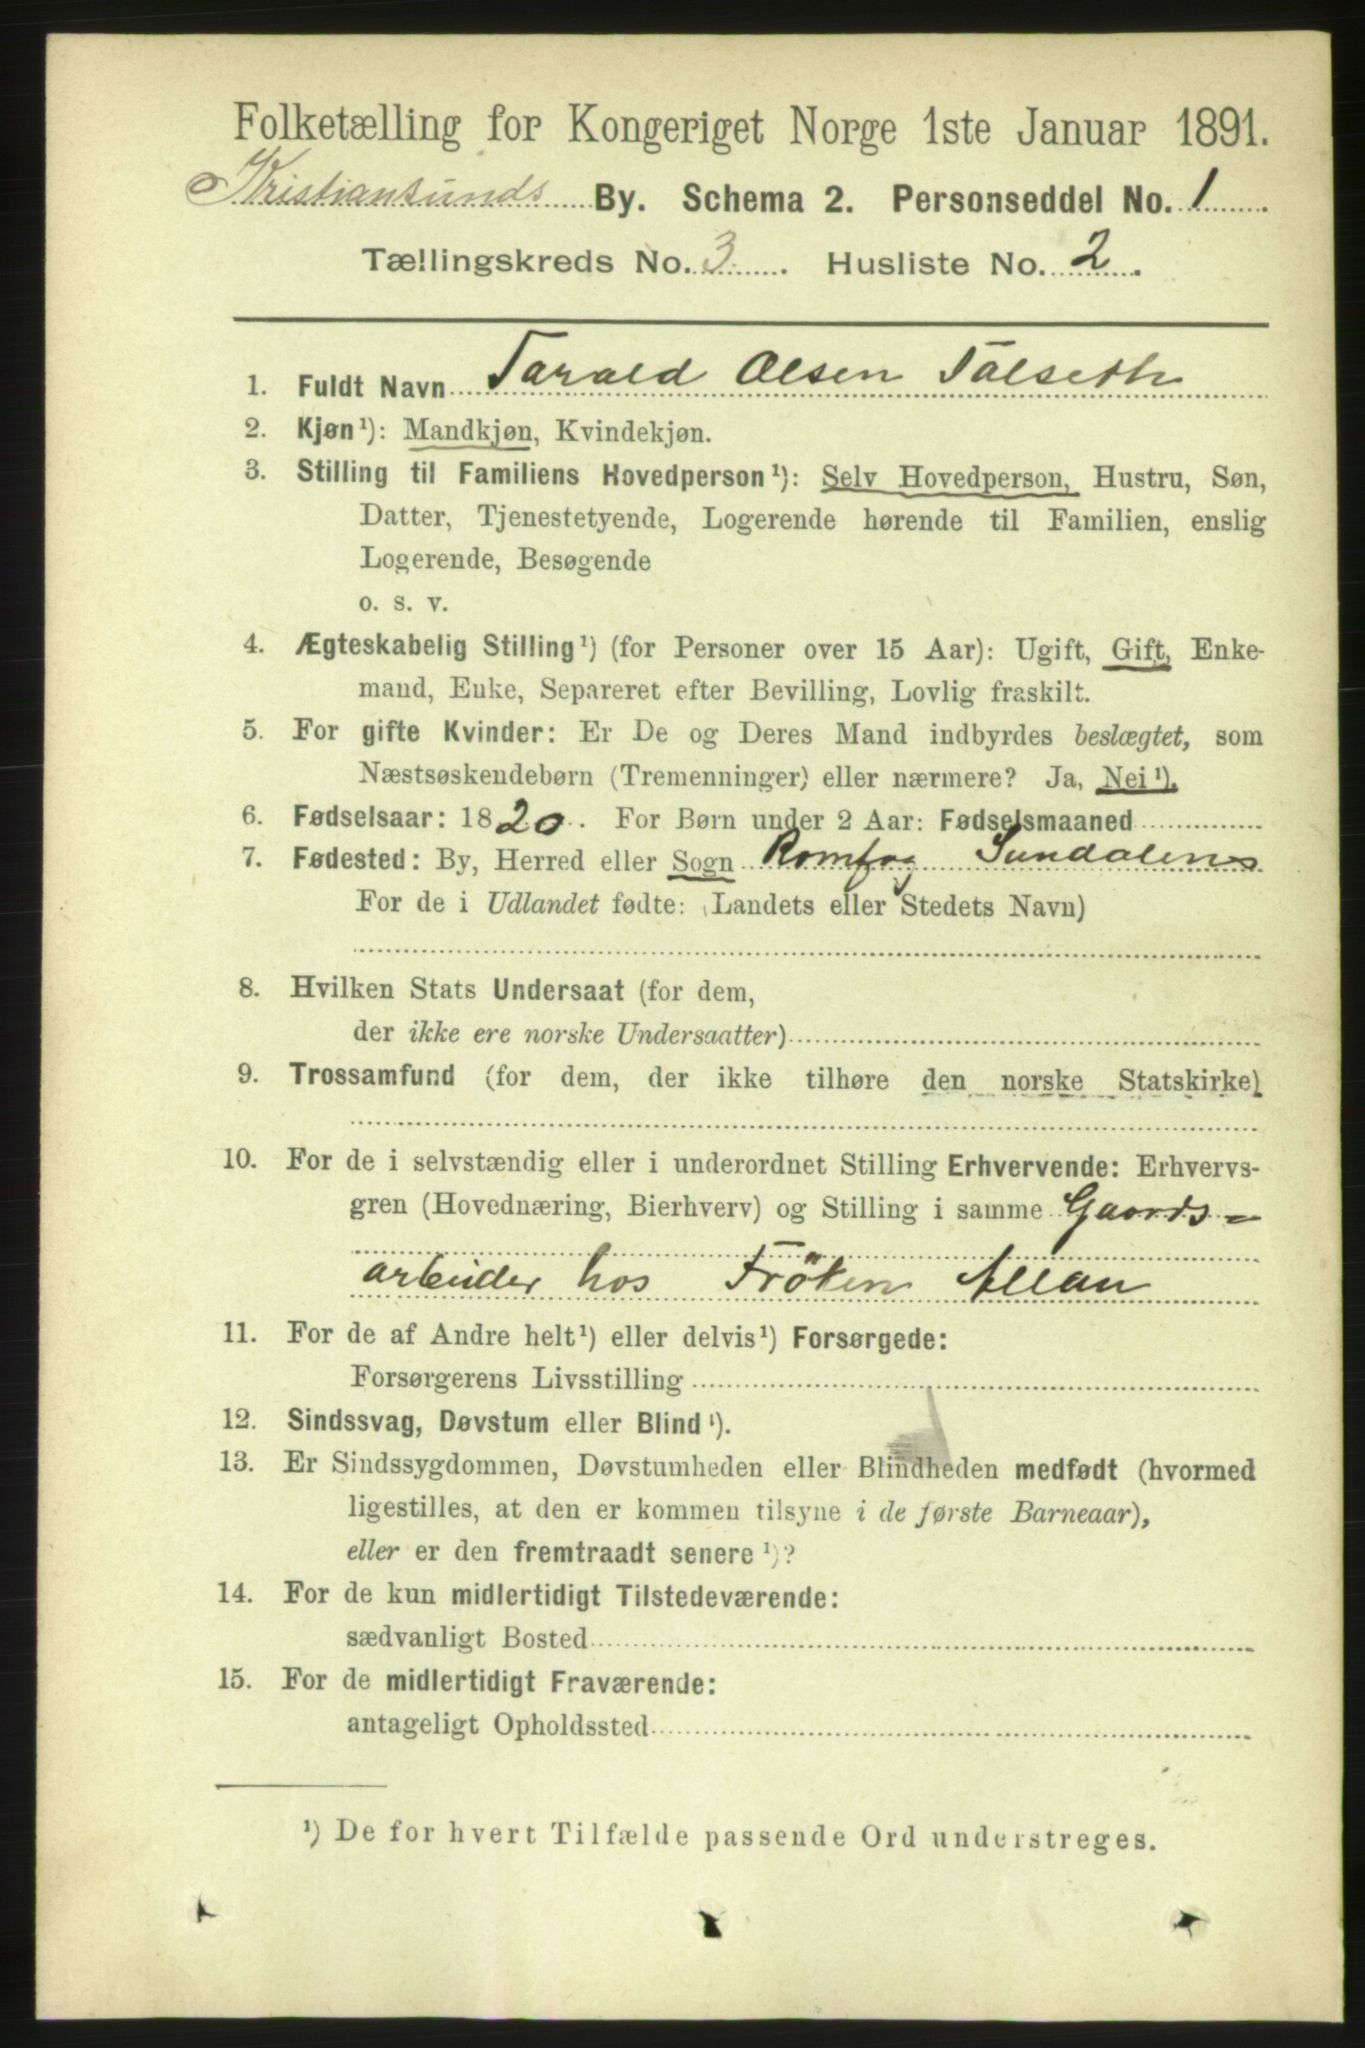 Folketælling for Kongeriget Norge 1ste Januar 1891.
Kristiansunds By. Schema 2. Personseddel No. 1
Tællingskreds No. 3. Husliste No. 2.
1. Fuldt Navn Tarald Olsen Tålseth
2. Kjøn¹): Mandkjøn, Kvindekjøn.
3. Stilling til Familiens Hovedperson¹): Selv Hovedperson, Hustru, Søn,
Datter, Tjenestetyende, Logerende hørende til Familien, enslig
Logerende, Besøgende
o. s. v.
4. Ægteskabelig Stilling¹) (for Personer over 15 Aar): Ugift, Gift, Enke-
mand, Enke, Separeret efter Bevilling, Lovlig fraskilt.
5. For gifte Kvinder: Er De og Deres Mand indbyrdes beslægtet, som
Næstsøskendebørn (Tremenninger) eller nærmere? Ja, Nei¹).
6. Fødselsaar: 1820. For Børn under 2 Aar: Fødselsmaaned
7. Fødested: By, Herred eller Sogn Romfog Sundalens
For de i Udlandet fødte: (Landets eller Stedets Navn)
8. Hvilken Stats Undersaat (for dem,
der ikke ere norske Undersaatter)
9. Trossamfund (for dem, der ikke tilhøre den norske Statskirke)
10. For de i selvstændig eller i underordnet Stilling Erhvervende: Erhvervs-
gren (Hovednæring, Bierhverv) og Stilling i samme Gaards-
arbeider hos Fröken Allan
11. For de af Andre helt¹) eller delvis¹) Forsørgede:
Forsørgerens Livsstilling
12. Sindssvag, Døvstum eller Blind¹).
13. Er Sindssygdommen, Døvstumheden eller Blindheden medfødt (hvormed
ligestilles, at den er kommen tilsyne i de første Barneaar),
eller er den fremtraadt senere¹)?
14. For de kun midlertidigt Tilstedeværende:
sædvanligt Bosted
15. For de midlertidigt Fraværende:
antageligt Opholdssted
¹) De for hvert Tilfælde passende Ord understreges.